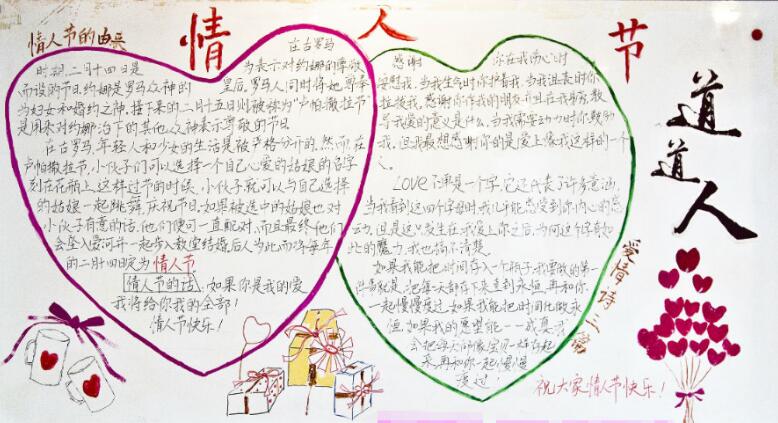 情人节
情人节的由来
在古罗马
时期,二月十四日是
为表示对约娜的尊敬
而设的节日约娜是罗马众神的
皇后,罗马人同时将她尊奉
为妇女和婚约之神,接下来的二月十五日则被称为“卢帕撒拉节”
是用来对约娜治下的其他众神表示尊敬的节日
在古罗马,年轻人和少女的生活是被严格分开的,然而,在
卢帕撒拉节,小伙子们可以选择一个自己心爱的姑娘的名字
刻在花瓶上,这样过节的时候,小伙子就可以与自己选择
的姑娘一起跳舞,庆祝节日,如果被选中的姑娘也对
小伙子有意的话,他们便可一直配对,而且最终他们
会坠入爱河并一起步入教堂结婚后人为此而将每年
的二月十四日定为情人节
情人节的话
如果你是我的爱
我将给你我的全部!
情人节快乐!
感谢
你在我伤心时
安慰我,当我生气时你护着我,当我沮丧时你
拉拔我,感谢你作我的朋友而且在我身旁,教
导我爱的意义是什么,当我需要动力时你鼓励
我,但我最想感谢你的是爱上像我这样的一个
人
LOVE不单是一个字,它还代表了许多意涵,
当我看到这四个字母时我几乎能感受到你内心的感
动,但是这只发生在我爱上你之后,为何这个字有如
此的魔力,我也搞不清楚
如果我能把时间存入一个瓶子,我要做的第一
件事就是,把每一天都存下来直到永恒,再和你
一起慢慢度过,如果我能把时间化做永
恒,如果我的愿望能一一成真,
会把每天的像宝贝一样存起
来再和你一起慢慢
度过!
爱情诗三篇
道道人
祝大家情人节快乐!